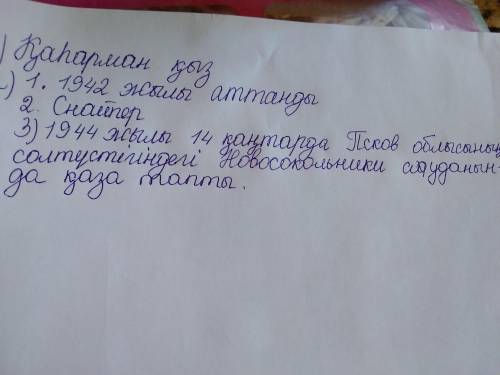 ) Қаһарман қыз
) 1. 1942 жылы аттанды
2. Снайпер
3) 1944 жылы 14 қаңтарда Псков облысының
солтүстігіндегі Новосокольники ауданын-
да қаза тапты.